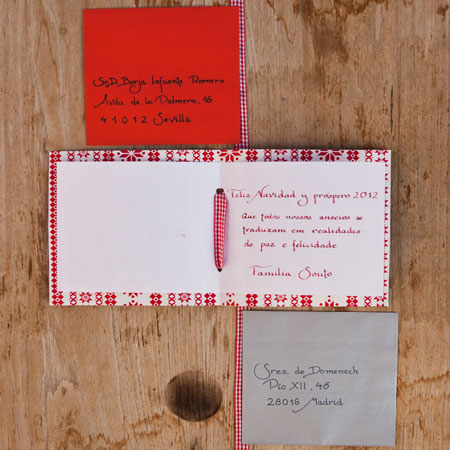 Sr.D. Borja Lafuente Romero
Avda. de la Palmera, 16
41012 Sevilla
Feliz Navidad y próspero 2012
Que todos nossos anseios se
traduzam em realidades
de paz e felicidade
Familia Souto
Sres. de Domenech
Pío XII, 46
28016 Madrid